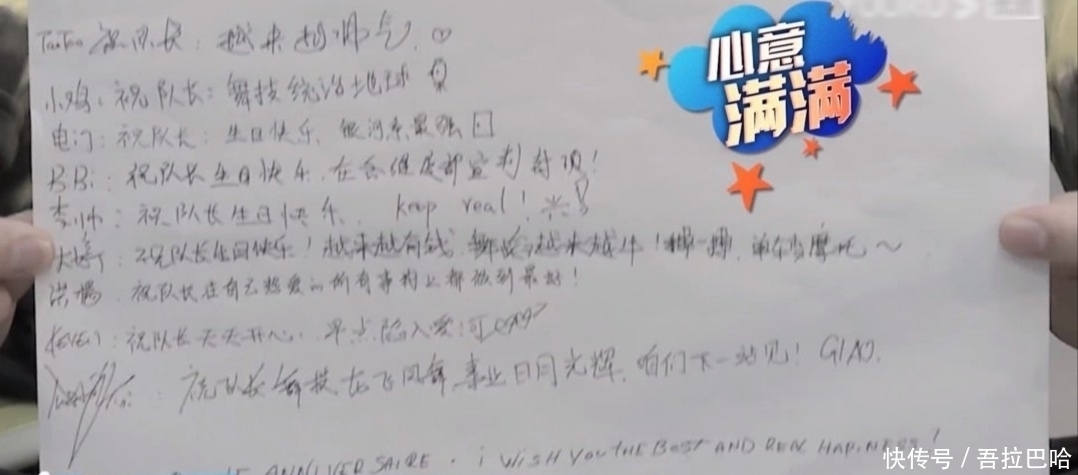 YOUKU
心意
满满
TaoTao祝队长：越来越帅气
小鸡：祝队长：舞技统治地球
电门：祝队长：生日快乐，银河系最强
BBi：祝队长生日快乐，在各维度都
李帅：祝队长生日快乐，keep real！
：祝队长生日快乐！越来越有钱，舞技越来越牛！
祝队长在自己热爱的所有事物上都做到最好！
祝队长天天开心，早点陷入爱河
：祝队长舞技龙飞凤舞，事业日月光辉，咱们下一站见！GIAO.
ANNIVERSAIRE . i WISH YOU THE BEST AND REAL HAPINESS！
快传号／吾拉巴哈